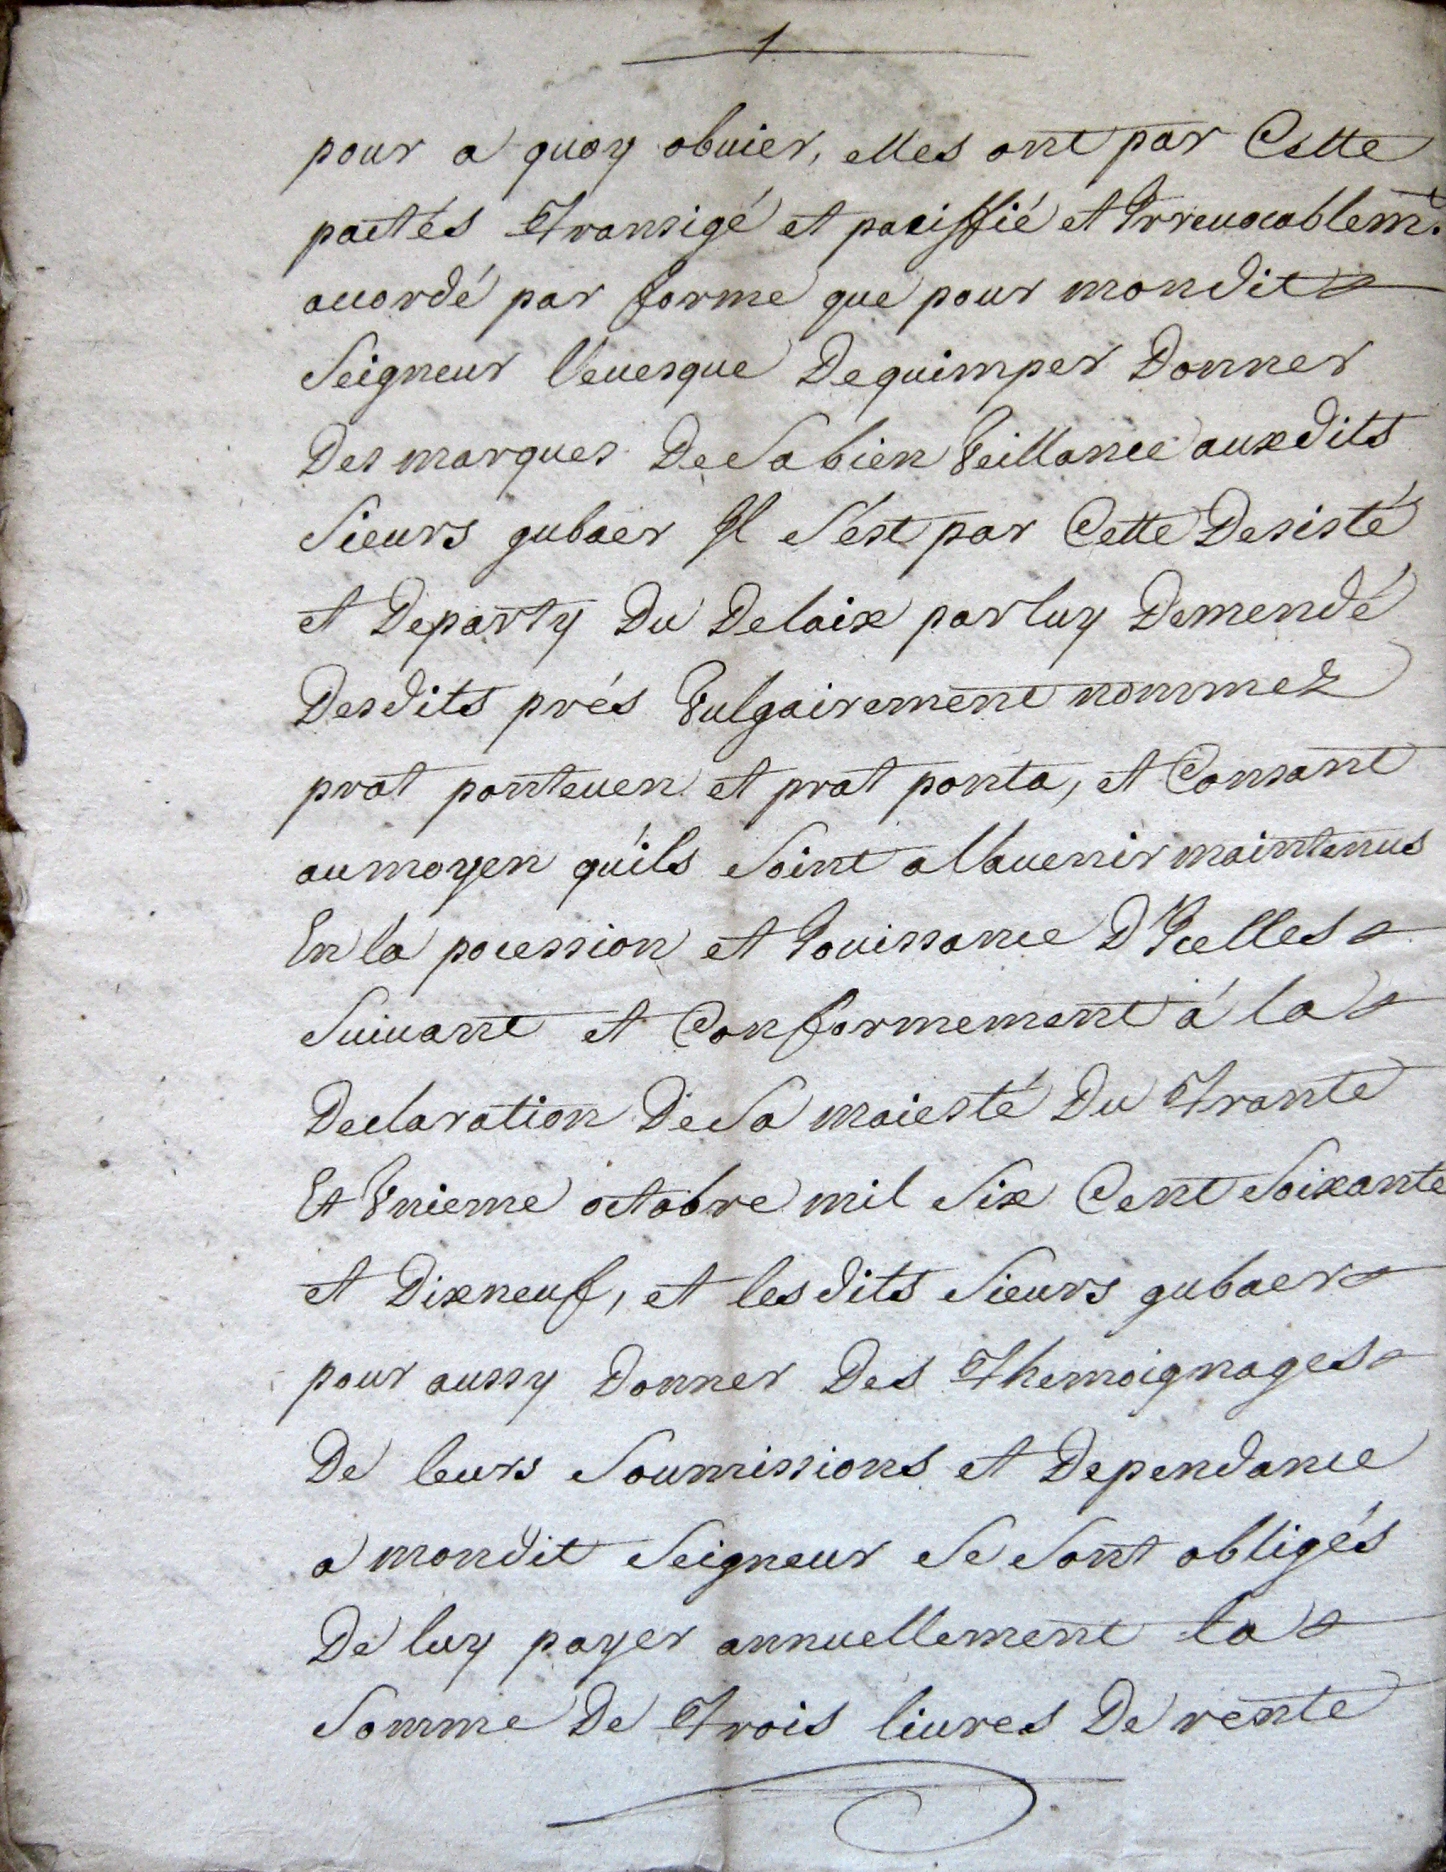 1
pour a quoy obuier, elles ont par Cette
pactés Transigé et paciffié et Irreuocablemt.
acordé par forme que pour mondit
Seigneur leuesque Dequimper Donner
Des marques De Sa bien Veillance auxdits
Sieurs gubaer Il S'est par Cette Desisté
et Departy Du Delaix par luy Demendé
Desdits prés Vulgairement nommez
prat panteuen et prat ponta, et Consant
aumoyen qu'ils Soint a lauenir maintenus
En la pocession et Jouissance D'Icelles
Suiuant et Conformement à la
Declaration De Sa maiesté Du Trante
Et Vnieme octobre mil Six Cent Soixante
et Dixneuf, et lesdits Sieurs gubaer
pour aussy Donner Des Themoignages
De leurs Soumissions et Dependance
a mondit Seigneur Se Sont obligés
De luy payer annuellement la
Somme De Trois liures De rente